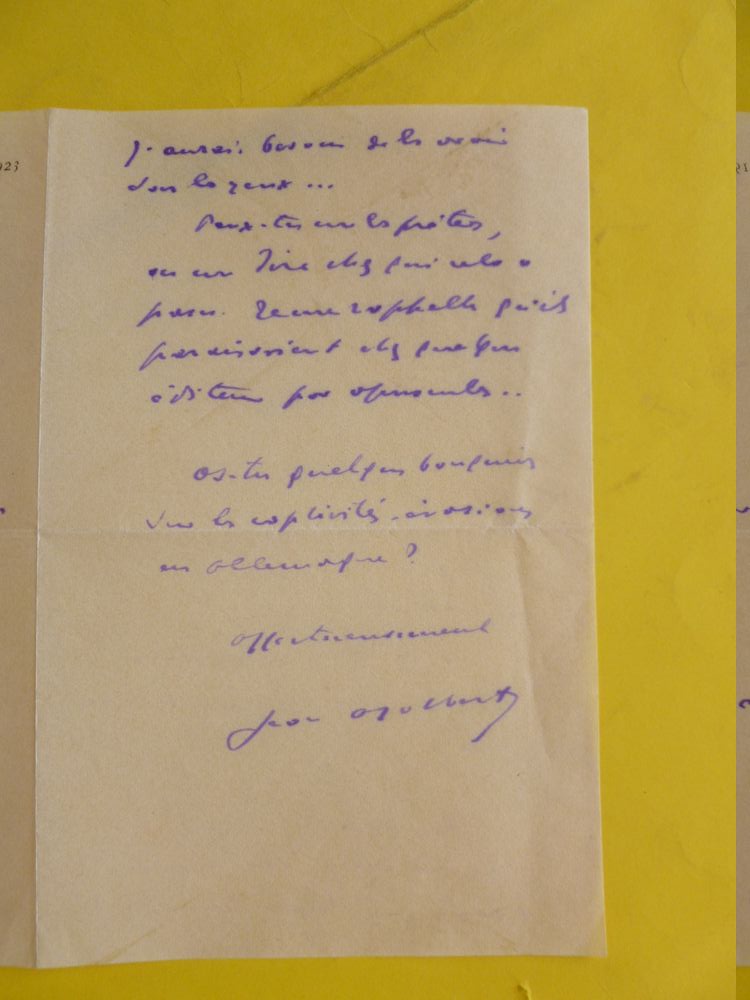 923
J'aurais besoin de les avoir
sous les yeux ...
Peux-tu me les prêter,
ou me dire chez qui cela a
paru. Je me rappelle qu'ils
paraissaient chez quelque
éditeur par opuscules ..
As-tu quelques bouquins
sur les captivités-évasions
en Allemagne ?
Affectueusement
Jean Ajalbert